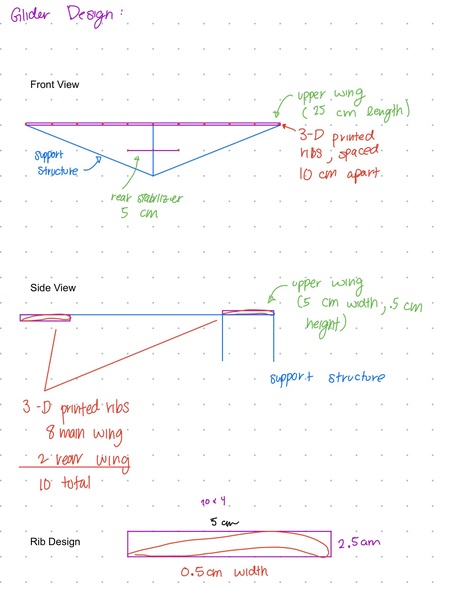 Glider Design :
Front View
upper wing
( 25 cm length)
3-D printed
ribs, spaced
10 cm apart.
support
structure
rear stabilizer
5 cm
Side View
upper wing
(5 cm width, .5 cm
height)
support structure
3-D printed ribs
8 main wing
2 rear wing
10 total
10 x 4
5 cm
Rib Design
2.5cm
0.5cm width